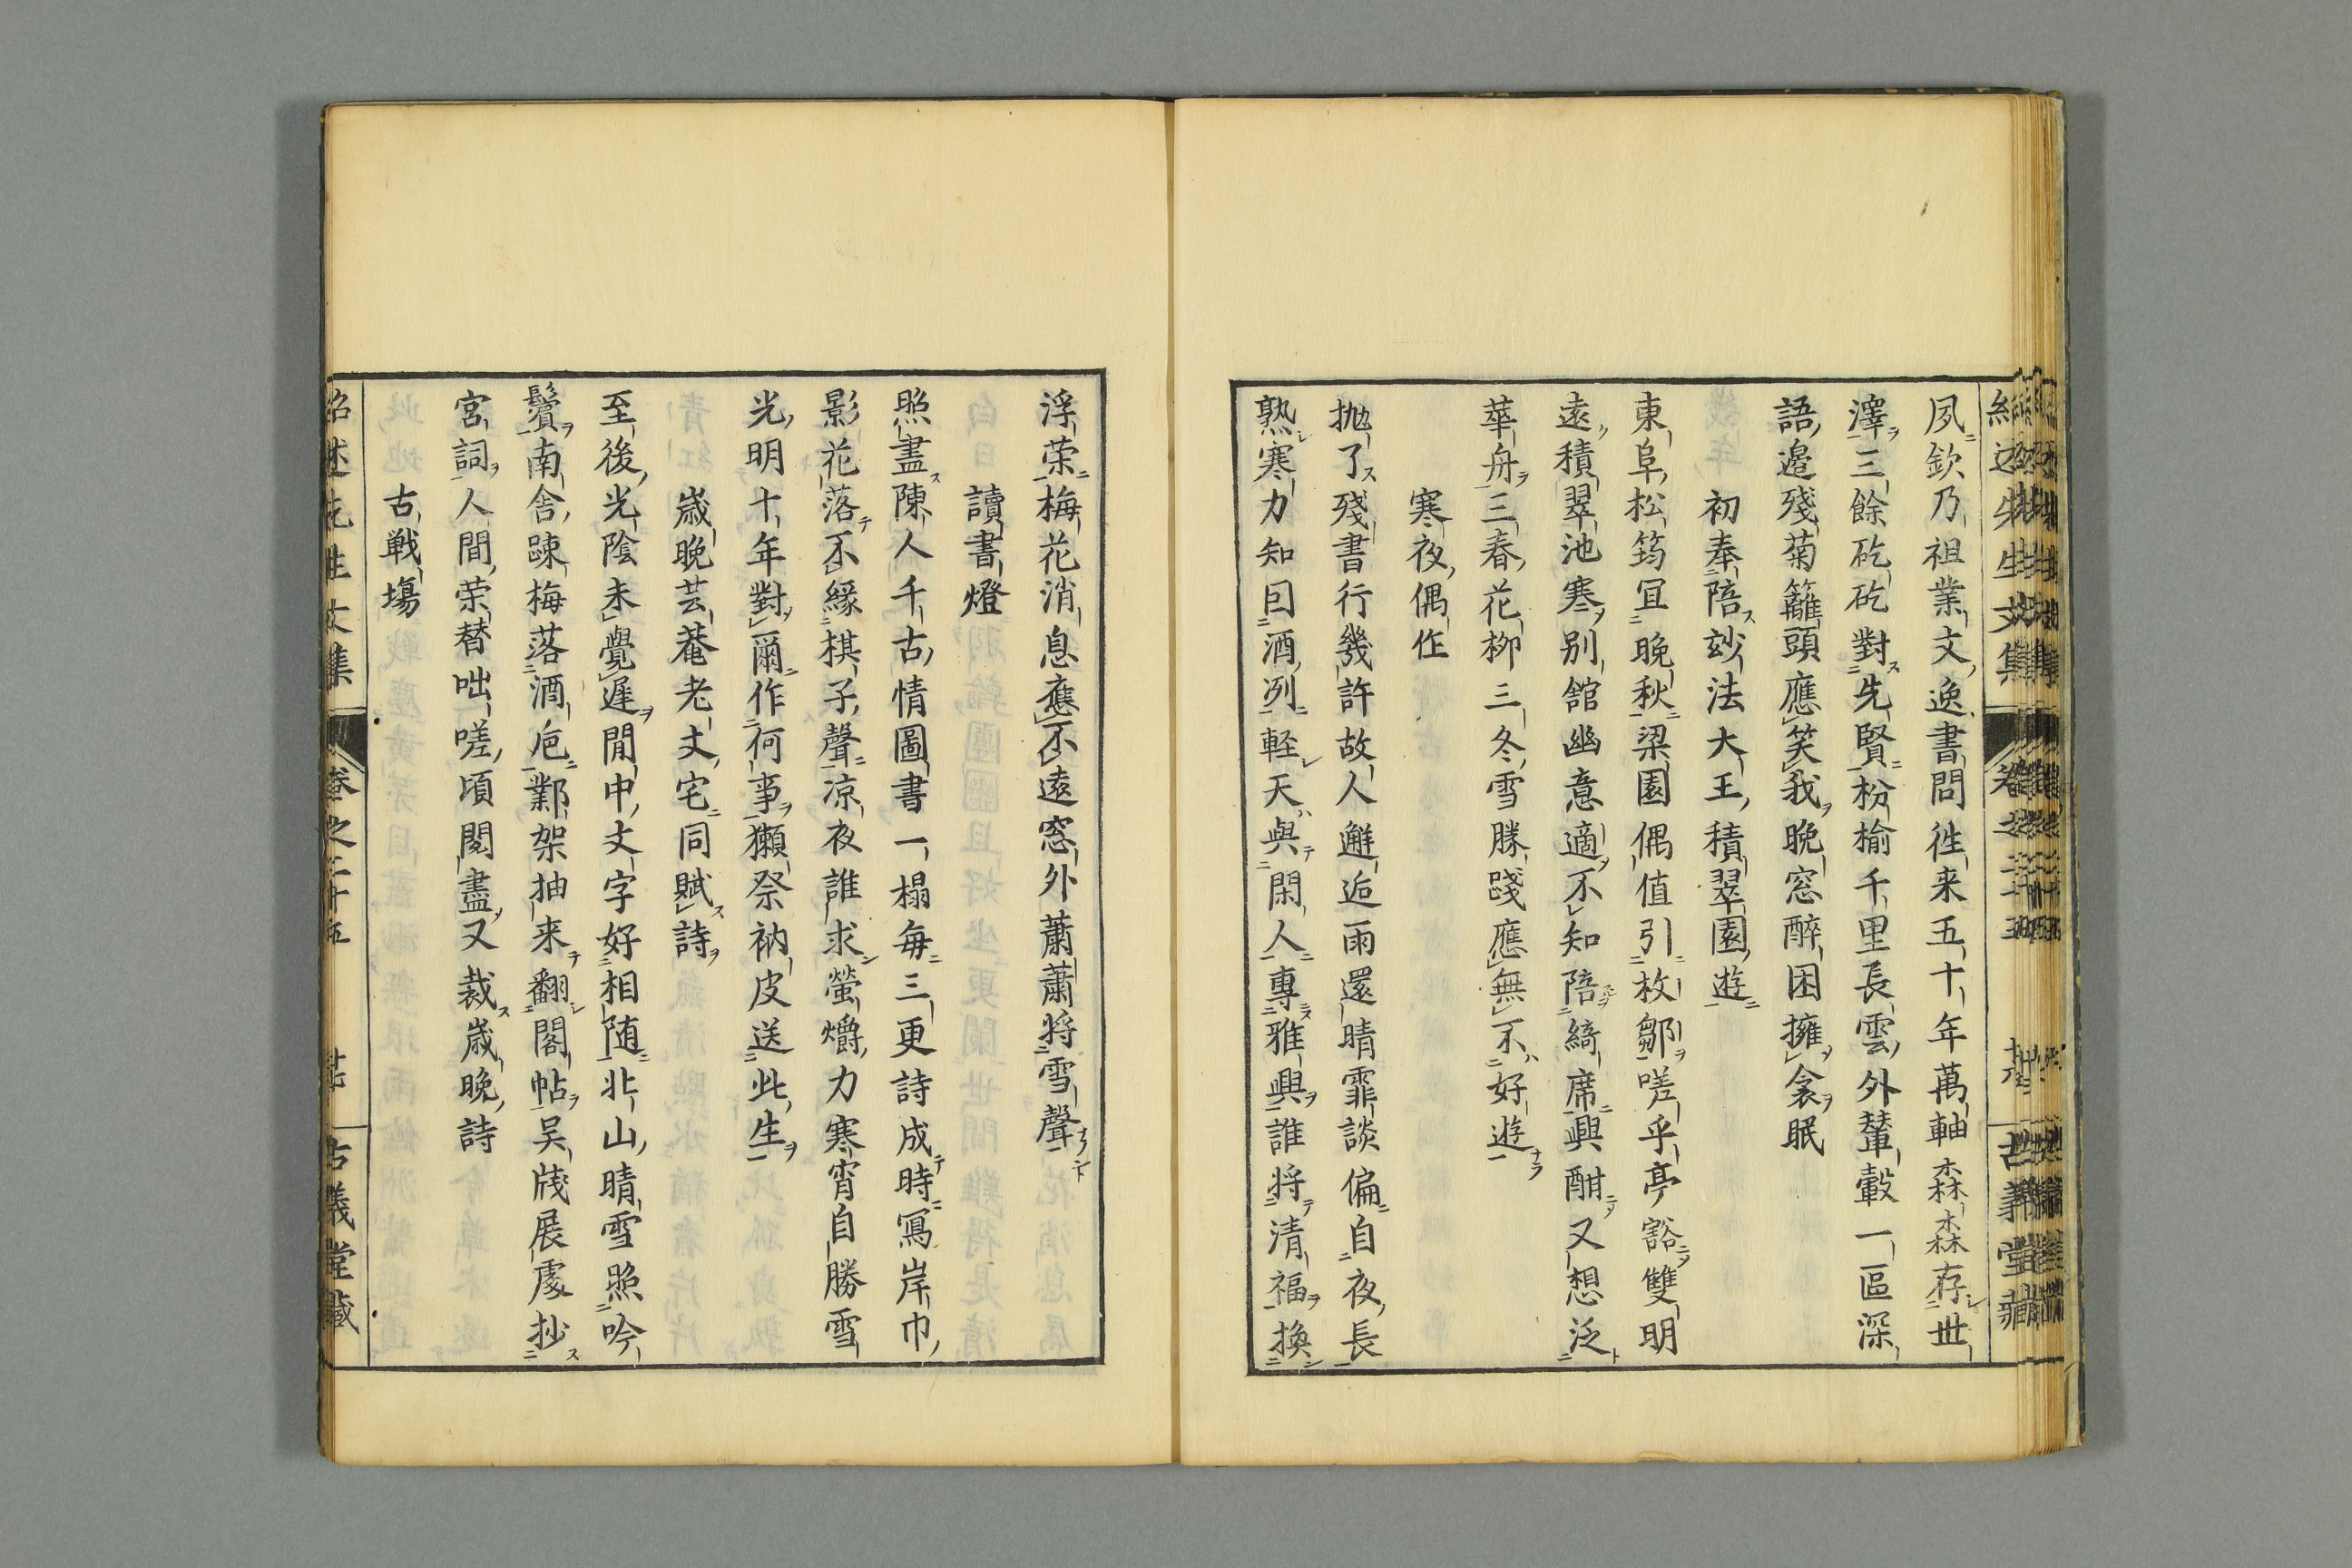 夙欽乃祖業文逸書問徃来五十年萬軸森森存世
澤三餘矻矻對先賢枌榆千里長雲外輦轂一區深
語邉殘菊籬頭應笑我晚窓醉困擁衾眠
初奉陪玅法大王積翠園遊
東阜松筠冝晚秋梁園偶值引枚鄒嗟乎亭豁雙明
遠積翠池寒别舘幽意適不知陪綺席興酣又想泛
華舟三春花栁三冬雪勝踐應無不好遊
寒夜偶作
抛了殘書行幾許故人邂逅雨還晴霏談偏自夜長
熟寒力知囙酒冽軽天與閑人專雅興誰将清福換
浮荣梅花消息應不遠窓外蕭蕭将雪聲
讀書燈
照盡陳人千古情圖書一榻毎三更詩成時寫岸巾
影花落不緣棋子聲凉夜誰求螢爝力寒宵自勝雪
光明十年對爾作何事獺祭衲皮送此生
歲晚芸菴老丈宅同賦詩
至後光陰未覺遲閒中文字好相随北山晴雪照吟
鬢南舎踈梅落酒巵鄴架抽来翻閣帖吴牋展處抄
宮詞人間荣替咄嗟頃閱盡又裁歲晚詩
古戦塲
紹述先生文集 卷之三十五 古義堂藏